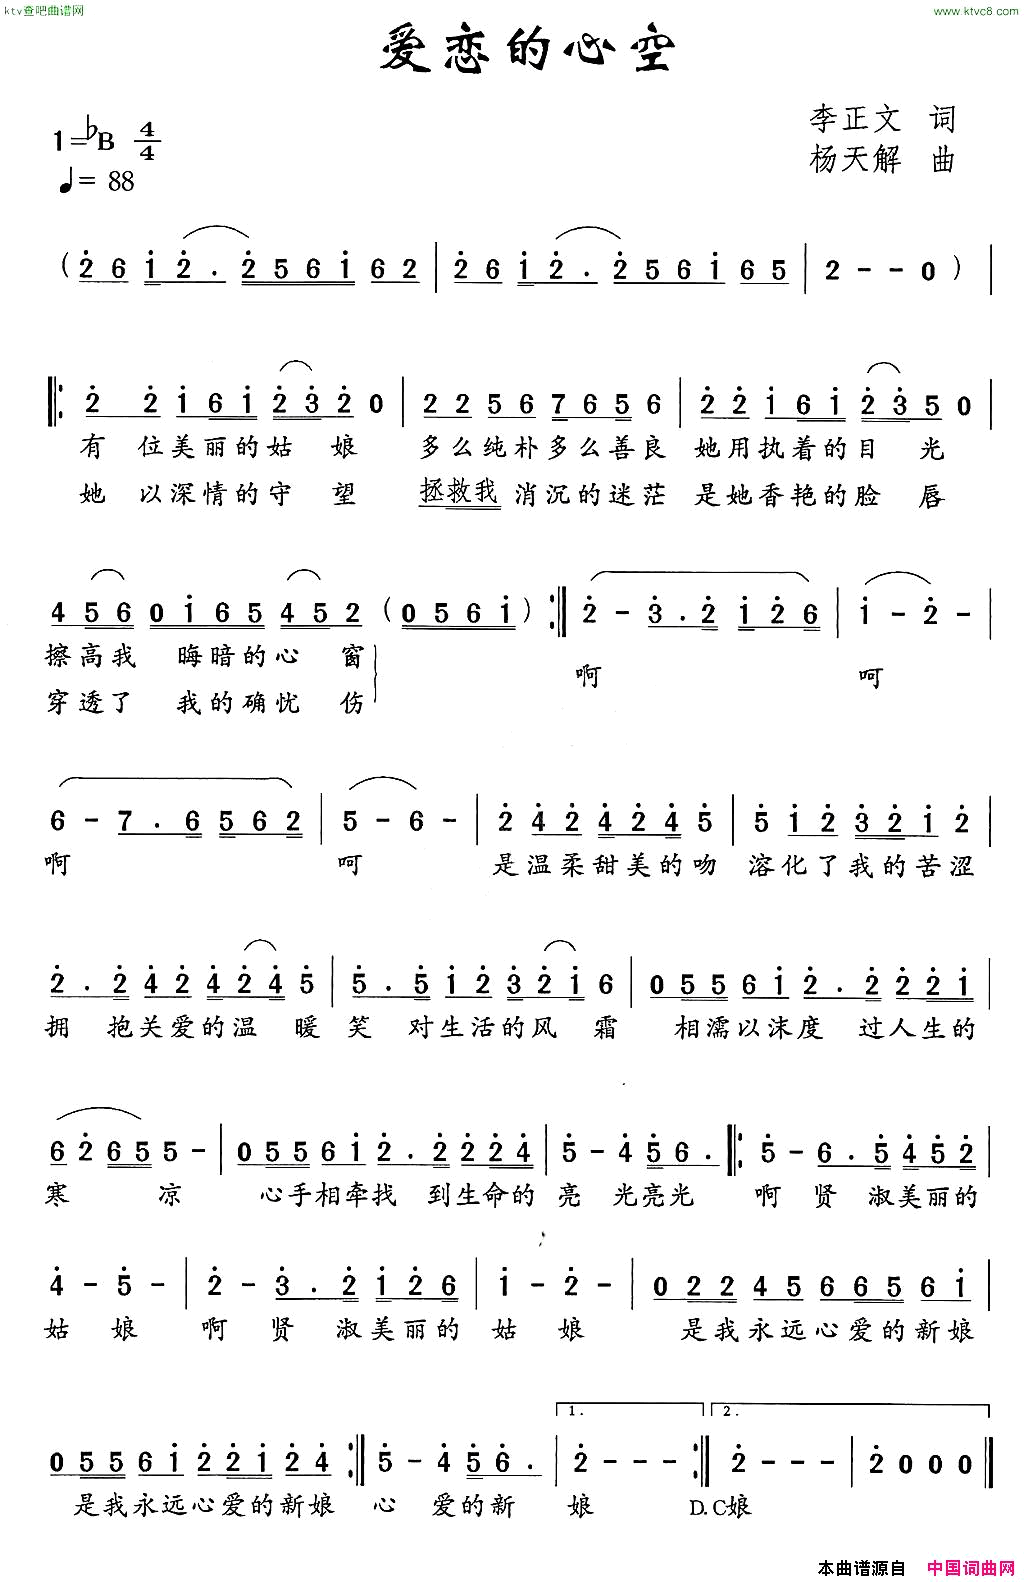 ktv查吧曲谱网
www.ktvc8.com
爱恋的心空
1=♭B 4/4
李正文 词
♩= 88
杨天解 曲
(2̇ 6 1̇ 2̇ . 2̇ 5 6 1̇ 6 2 | 2̇ 6 1̇ 2̇ . 2̇ 5 6 1̇ 6 5 | 2 - - 0 ) |
‖: 2̇ 2̇ 1̇ 6 1̇ 2̇ 3̇ 2̇ 0 | 2 2 5 6 7 6 5 6 | 2̇ 2̇ 1̇ 6 1̇ 2̇ 3̇ 5 0 |
有 位美丽的姑 娘 多么纯朴多么善良 她用执着的目 光
她 以深情的守 望 拯救我 消沉的迷茫 是她香艳的脸 唇
4 5 6 0 1̇ 6 5 4 5 2 ( 0 5 6 1̇ ) :‖ 2̇ - 3̇ . 2̇ 1̇ 2̇ 6 | 1̇ - 2̇ - |
擦高我 晦暗的心 窗 啊 呵
穿透了 我的确忧 伤
6 - 7 . 6 5 6 2 | 5 - 6 - | 2̇ 4̇ 2̇ 4̇ 2̇ 4̇ 5̇ | 5̇ 1̇ 2̇ 3̇ 2̇ 1̇ 2̇ |
啊 呵 是温柔甜美的吻 溶化了我的苦涩
2̇ . 2̇ 4̇ 2̇ 4̇ 2̇ 4̇ 5̇ | 5̇ . 5̇ 1̇ 2̇ 3̇ 2̇ 1̇ 6 | 0 5 5 6 1̇ 2̇ . 2̇ 2̇ 2̇ 1̇ |
拥 抱关爱的温 暖 笑 对生活的风 霜 相濡以沫度 过人生的
6 2̇ 6 5 5 - | 0 5 5 6 1̇ 2̇ . 2̇ 2̇ 2̇ 4̇ | 5̇ - 4̇ 5̇ 6 . ‖: 5̇ - 6 . 5̇ 4̇ 5̇ 2̇ |
寒 凉 心手相牵找 到生命的 亮 光亮光 啊 贤 淑美丽的
4̇ - 5̇ - | 2̇ - 3̇ . 2̇ 1̇ 2̇ 6 | 1̇ - 2̇ - | 0 2 2 4 5 6 6 5 6 1̇ |
姑 娘 啊 贤 淑美丽的 姑 娘 是我永远心爱的新娘
0 5 5 6 1̇ 2̇ 2̇ 1̇ 2̇ 4̇ :‖ 5̇ - 4̇ 5̇ 6̇ . | 1. 2̇ - - - :‖ 2. 2̇ - - - | 2̇ 0 0 0 ‖
是我永远心爱的新娘 心 爱的新 娘 D.C娘
本曲谱源自 中国词曲网